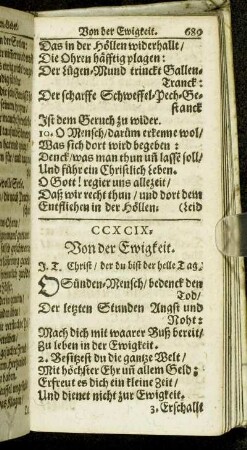 Von der Ewigkeit. 689
Das in der Höllen widerhalle/
Die Ohren häfftig plagen:
Der Lügen-Mund trinckt Gallen-
Tranck:
Der scharffe Schweffel-Pech-Ge-
stanck
Ist dem Geruch zu wider.
10. O Mensch/ darüm erkenne wol/
Was sich dort wird begeben:
Denck/ was man thun uñ lassẽ soll/
Und führ ein Christlich Leben.
O Gott! regier uns allezeit/
Daß wir recht thun/ und dort dem
Entfliehen in der Höllen. (Leid
CCXCIX.
Von der Ewigkeit.
J. T. Christ/ der du bist der helle Tag.
O Sünden-Mensch/ bedenck den
Tod/
Der letzten Stunden Angst und
Noht:
Mach dich mit waarer Buß bereit/
Zu leben in der Ewigkeit.
2. Besitzest du die gantze Welt/
Mit höchster Ehr uñ allem Geld;
Erfreut es dich ein kleine Zeit/
Und dienet nicht zur Ewigkeit.
3. Erschallt